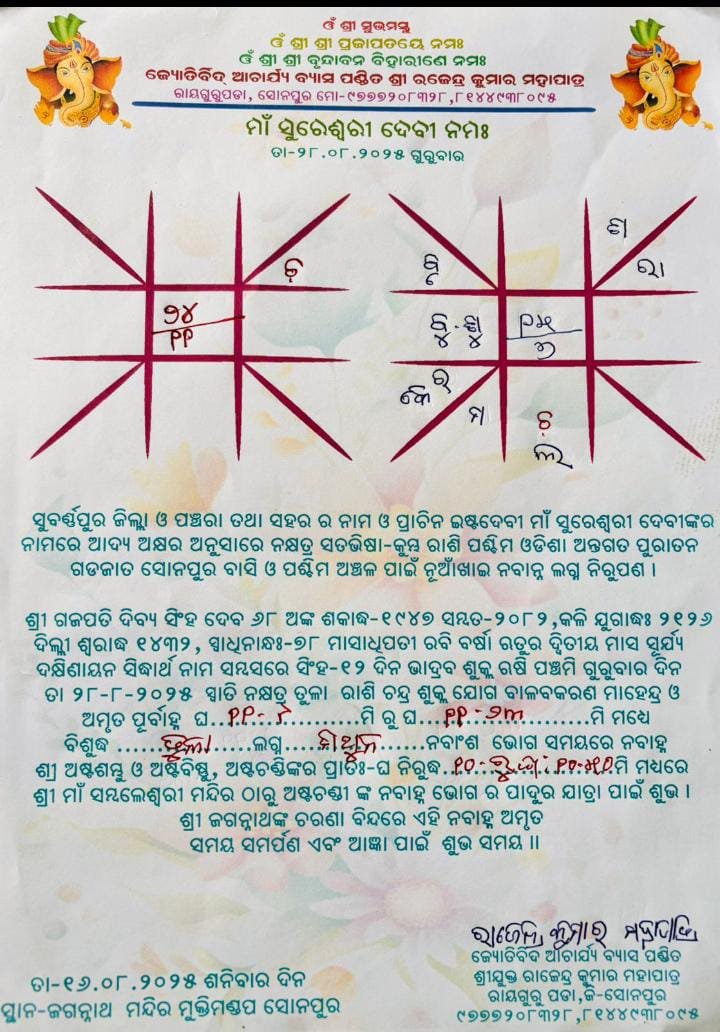 ଓଁ ଶ୍ରୀ ସୁଭମସ୍ତୁ
ଓଁ ଶ୍ରୀ ଶ୍ରୀ ପ୍ରଜାପତୟେ ନମଃ
ଓଁ ଶ୍ରୀ ଶ୍ରୀ ବୃନ୍ଦାବନ ବିହାରୀଣେ ନମଃ
ଜ୍ୟୋତିର୍ବିଦ୍ ଆଚାର୍ଯ୍ୟ ବ୍ୟାସ ପଣ୍ଡିତ ଶ୍ରୀ ରଜେନ୍ଦ୍ର କୁମାର ମହାପାତ୍ର
ରାୟଗୁରୁପଡା, ସୋନପୁର ମୋ-୯୭୭୭୨୦୮୩୨୮,୮୧୪୪୯୩୮୦୯୫
ମାଁ ସୁରେଶ୍ୱରୀ ଦେବୀ ନମଃ
ତା-୨୮.୦୮.୨୦୨୫ ଗୁରୁବାର
ଚ଼
୨୪
୧୧
ଶ
ରା
ବୃ
ବୁ.ଶୁ
୭
କେ ର
ମ
ଚ଼
ଲ
ସୁବର୍ଣ୍ଣପୁର ଜିଲ୍ଲା ଓ ପଞ୍ଚରା ତଥା ସହର ର ନାମ ଓ ପ୍ରାଚିନ ଇଷ୍ଟଦେବୀ ମାଁ ସୁରେଶ୍ୱରୀ ଦେବୀଙ୍କର
ନାମରେ ଆଦ୍ୟ ଅକ୍ଷର ଅନୁସାରେ ନକ୍ଷତ୍ର ସତଭିଷା-କୁମ୍ଭ ରାଶି ପଶ୍ଚିମ ଓଡିଶା ଅନ୍ତଗତ ପୁରାତନ
ଗଡଜାତ ସୋନପୁର ବାସି ଓ ପଶ୍ଚିମ ଅଞ୍ଚଳ ପାଇଁ ନୂଆଁଖାଇ ନବାନ୍ନ ଲଗ୍ନ ନିରୁପଣ ।
ଶ୍ରୀ ଗଜପତି ଦିବ୍ୟ ସିଂହ ଦେବ ୬୮ ଅଙ୍କ ଶକାବ୍ଧ-୧୯୪୭ ସମ୍ୱତ-୨୦୮୨,କଳି ଯୁଗାବ୍ଧଃ ୨୧୨୬
ଦିଲ୍ଲୀ ଶ୍ୱରାବ୍ଧ ୧୪୩୨, ସ୍ୱାଧିନାବ୍ଧଃ-୭୮ ମାସାଧିପତୀ ରବି ବର୍ଷା ଋତୁର ଦ୍ୱିତୀୟ ମାସ ସୂର୍ଯ୍ୟ
ଦକ୍ଷିଣାୟନ ସିଦ୍ଧାର୍ଥ ନାମ ସମ୍ୱସରେ ସିଂହ-୧୨ ଦିନ ଭାଦ୍ରବ ଶୁକ୍ଲ ଋଷି ପଞ୍ଚମି ଗୁରୁବାର ଦିନ
ତା ୨୮-୮-୨୦୨୫ ସ୍ୱାତି ନକ୍ଷତ୍ର ତୁଳା ରାଶି ଚନ୍ଦ୍ର ଶୁକ୍ଲ ଯୋଗ ବାଳବକରଣ ମାହେନ୍ଦ୍ର ଓ
ଅମୃତ ପୂର୍ବାହ୍ନ ଘ..୧୧-୮..........ମି ରୁ ଘ....୧୧-୨୩............ମି ମଧ୍ୟେ
ବିଶୁଦ୍ଧ ......ତୁଳା.....ଲଗ୍ନ....ମିଥୁନ......ନବାଂଶ ଭୋଗ ସମୟରେ ନବାହ୍ନ
ଶ୍ରୀ ଅଷ୍ଟଶମ୍ଭୁ ଓ ଅଷ୍ଟବିଷ୍ଣୁ, ଅଷ୍ଟଚଣ୍ଡିଙ୍କର ପ୍ରାତଃ-ଘ ବିରୁଦ୍ଧ.....ମି ମଧ୍ୟରେ
ଶ୍ରୀ ମାଁ ସମ୍ୱଲେଶ୍ୱରୀ ମନ୍ଦିର ଠାରୁ ଅଷ୍ଟଚଣ୍ଡୀ ଙ୍କ ନବାହ୍ନ ଭୋଗ ର ପାଦୁର ଯାତ୍ରା ପାଇଁ ଶୁଭ ।
ଶ୍ରୀ ଜଗନ୍ନାଥଙ୍କ ଚରଣା ବିନ୍ଦରେ ଏହି ନବାହ୍ନ ଅମୃତ
ସମୟ ସମର୍ପଣ ଏବଂ ଆଜ୍ଞା ପାଇଁ ଶୁଭ ସମୟ ॥
ରାଜେନ୍ଦ୍ର କୁମାର ମହାପାତ୍ର
ଜ୍ୟୋତିର୍ବିଦ ଆଚାର୍ଯ୍ୟ ବ୍ୟାସ ପଣ୍ଡିତ
ଶ୍ରୀଯୁକ୍ତ ରାଜେନ୍ଦ୍ର କୁମାର ମହାପାତ୍ର
ରାୟଗୁରୁ ପଡା,ଜି-ସୋନପୁର
୯୭୭୭୨୦୮୩୨୮,୮୧୪୪୯୩୮୦୯୫
ତା-୧୬.୦୮.୨୦୨୫ ଶନିବାର ଦିନ
ସ୍ଥାନ-ଜଗନ୍ନାଥ ମନ୍ଦିର ମୁକ୍ତିମଣ୍ଡପ ସୋନପୁର